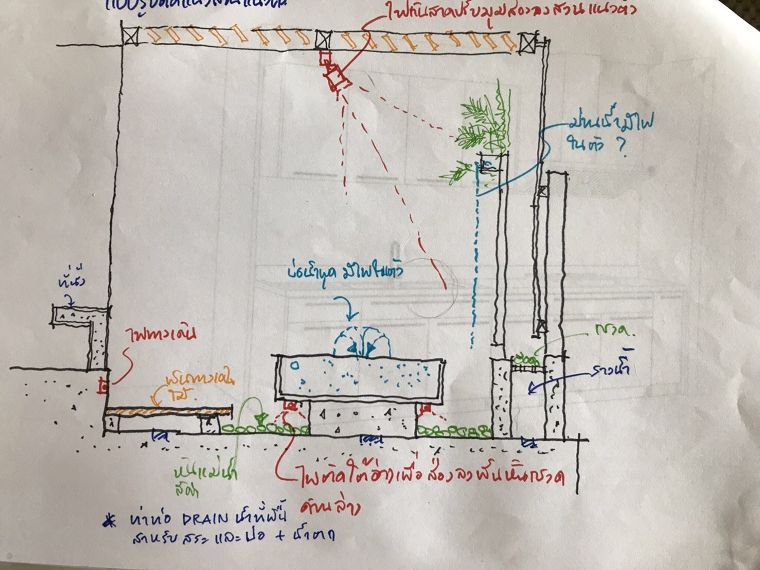 ไฟกันสาดปรับมุมส่องลงสวนแนวตั้ง
ม่านน้ำมีไฟ
ในตัว ?
บ่อน้ำพุด มีไฟในตัว
ที่นั่ง
ไฟทางเดิน
พื้นทางเดิน
ไม้
กรวด.
รางน้ำ
หินแม่น้ำ
สีดำ
ไฟติดใต้อ่างเพื่อส่องลงพื้นหินกรวด
ด้านล่าง
* ทำท่อ DRAIN น้ำที่พื้น
สำหรับ สระ และ บ่อ + น้ำตก